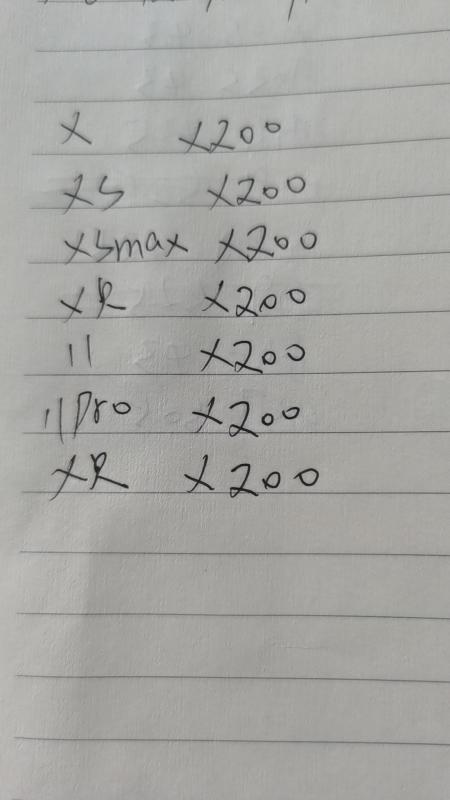 X X200
XS X200
XSmax X200
XR X200
11 X200
11Pro X200
XR X200